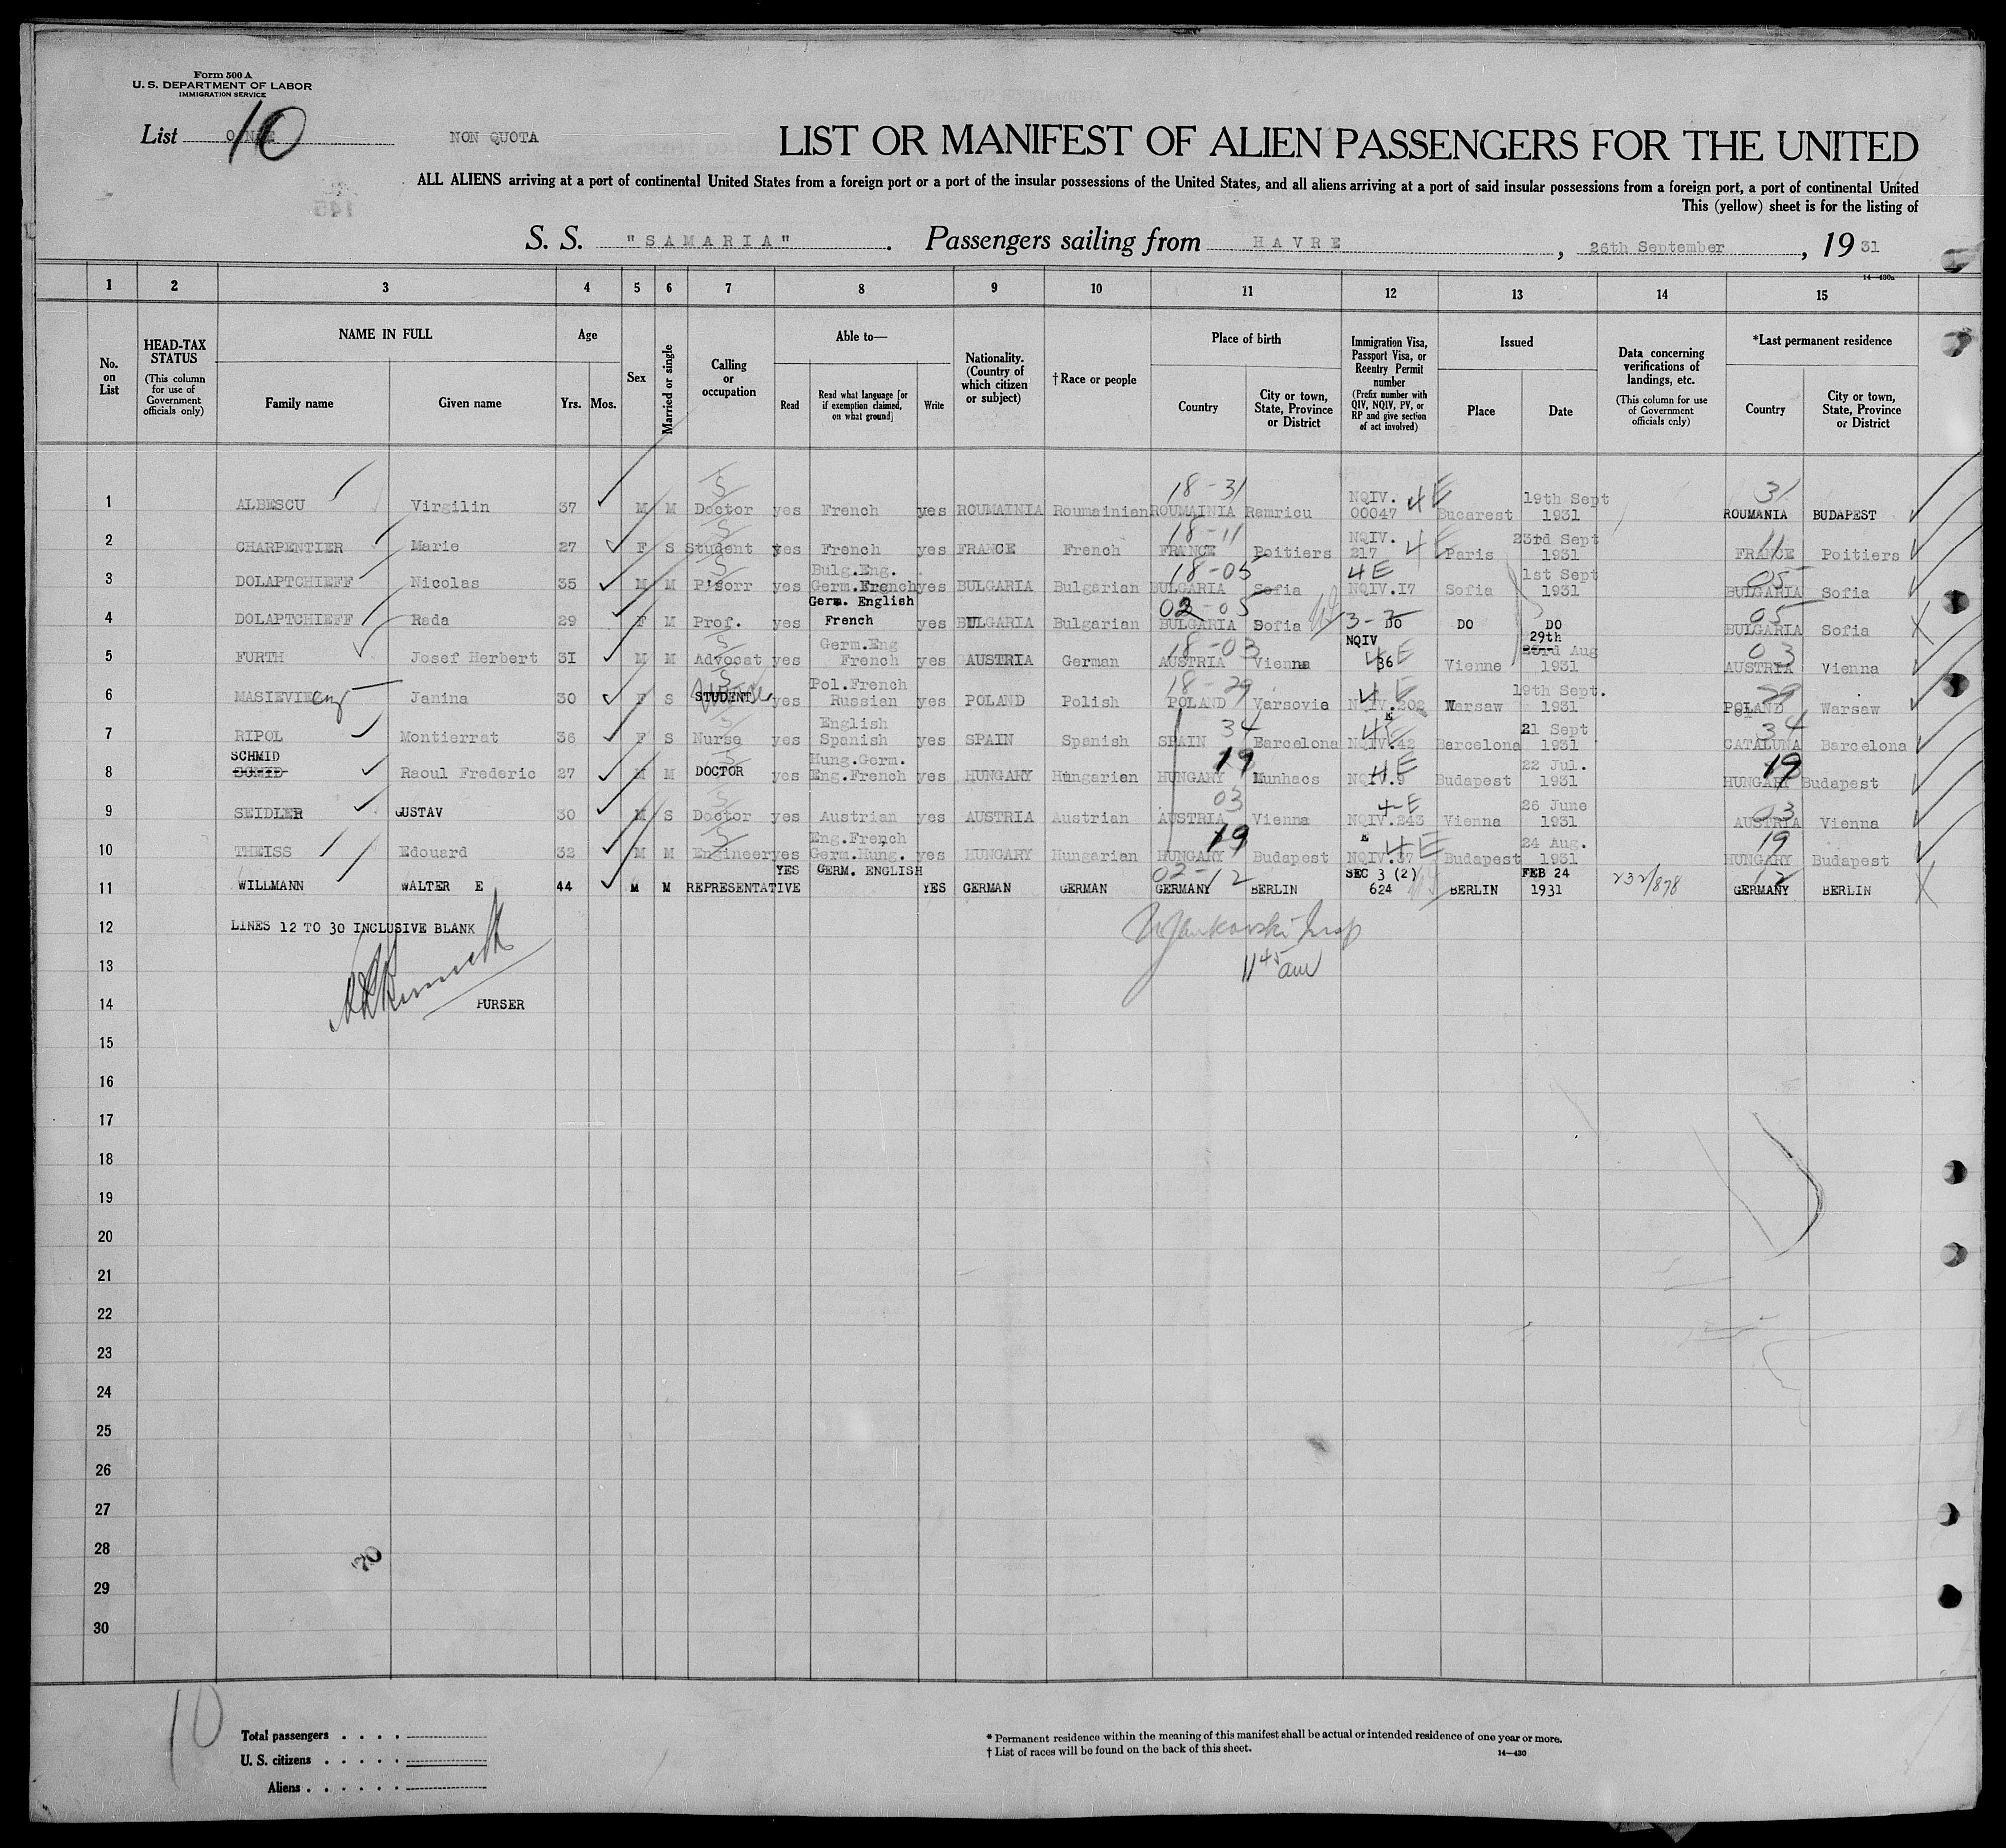 Form 500 A
U. S. DEPARTMENT OF LABOR
IMMIGRATION SERVICE
List 10 NON QUOTA
LIST OR MANIFEST OF ALIEN PASSENGERS FOR THE UNITED
ALL ALIENS arriving at a port of continental United States from a foreign port or a port of the insular possessions of the United States, and all aliens arriving at a port of said insular possessions from a foreign port, a port of continental United
This (yellow) sheet is for the listing of
S. S. "SAMARIA". Passengers sailing from HAVRE, 26th September, 1931
14—430a
1 2 3 4 5 6 7 8 9 10 11 12 13 14 15
No. on List
HEAD-TAX STATUS (This column for use of Government officials only)
NAME IN FULL
Family name Given name
Age
Yrs. Mos.
Sex
Married or single
Calling or occupation
Able to—
Read
Read what language [or if exemption claimed, on what ground]
Write
Nationality. (Country of which citizen or subject)
† Race or people
Place of birth
Country
City or town, State, Province or District
Immigration Visa, Passport Visa, or Reentry Permit number (Prefix number with QIV, NQIV, PV, or RP and give section of act involved)
Issued
Place Date
Data concerning verifications of landings, etc. (This column for use of Government officials only)
*Last permanent residence
Country
City or town, State, Province or District
1 ALBESCU Virgilin 37 M M S Doctor yes French yes ROUMAINIA Roumainian 18-31 ROUMAINIA Remricu NQIV. 00047 4E Bucarest 19th Sept 1931 31 ROUMANIA BUDAPEST
2 CHARPENTIER Marie 27 F S S Student yes French yes FRANCE French 18-11 FRANCE Poitiers NQIV. 217 4E Paris 23rd Sept 1931 11 FRANCE Poitiers
3 DOLAPTCHIEFF Nicolas 35 M M S P'sorr yes Bulg.Eng. Germ.French yes BULGARIA Bulgarian 18-05 BULGARIA Sofia 4E NQIV.I7 Sofia 1st Sept 1931 05 BULGARIA Sofia
4 DOLAPTCHIEFF Rada 29 F M Prof. yes Germ. English French yes BULGARIA Bulgarian 02-05 BULGARIA Sofia 3-2 DO DO DO 05 BULGARIA Sofia
5 FURTH Josef Herbert 3I M M S Advocat yes Germ.Eng French yes AUSTRIA German 18-03 AUSTRIA Vienna NQIV 36 4E Vienne 29th 23rd Aug 1931 03 AUSTRIA Vienna
6 MASIEVIE Janina 30 F S S STUDENT yes Pol.French Russian yes POLAND Polish 18-29 POLAND Varsovie 4E NQIV.202 Warsaw 19th Sept. 1931 29 POLAND Warsaw
7 RIPOL Montierrat 36 F S S Nurse yes English Spanish yes SPAIN Spanish 34 SPAIN Barcelona 4E NQIV.42 Barcelona 21 Sept 1931 34 CATALUNA Barcelona
8 SCHMID Raoul Frederic 27 M M S DOCTOR yes Hung.Germ. Eng.French yes HUNGARY Hungarian 19 HUNGARY Munhacs NQIV.9 4E Budapest 22 Jul. 1931 19 HUNGARY Budapest
9 SEIDLER GUSTAV 30 M S S Doctor yes Austrian yes AUSTRIA Austrian 03 AUSTRIA Vienna 4-E NQIV.243 Vienna 26 June 1931 03 AUSTRIA Vienna
10 THEISS Edouard 32 M M S Engineer yes Eng.French Germ.Hung. yes HUNGARY Hungarian 19 HUNGARY Budapest NQIV.37 4E Budapest 24 Aug. 1931 19 HUNGARY Budapest
11 WILLMANN WALTER E 44 M M REPRESENTATIVE YES GERM. ENGLISH YES GERMAN GERMAN 02-12 GERMANY BERLIN SEC 3 (2) 624 BERLIN FEB 24 1931 232/878 12 GERMANY BERLIN
12 LINES 12 TO 30 INCLUSIVE BLANK
13 11 45 am
14 PURSER
15
16
17
18
19
20
21
22
23
24
25
26
27
28
29
30
10
Total passengers . . . .
U. S. citizens . . . . .
Aliens . . . . . .
* Permanent residence within the meaning of this manifest shall be actual or intended residence of one year or more.
† List of races will be found on the back of this sheet.
14—430